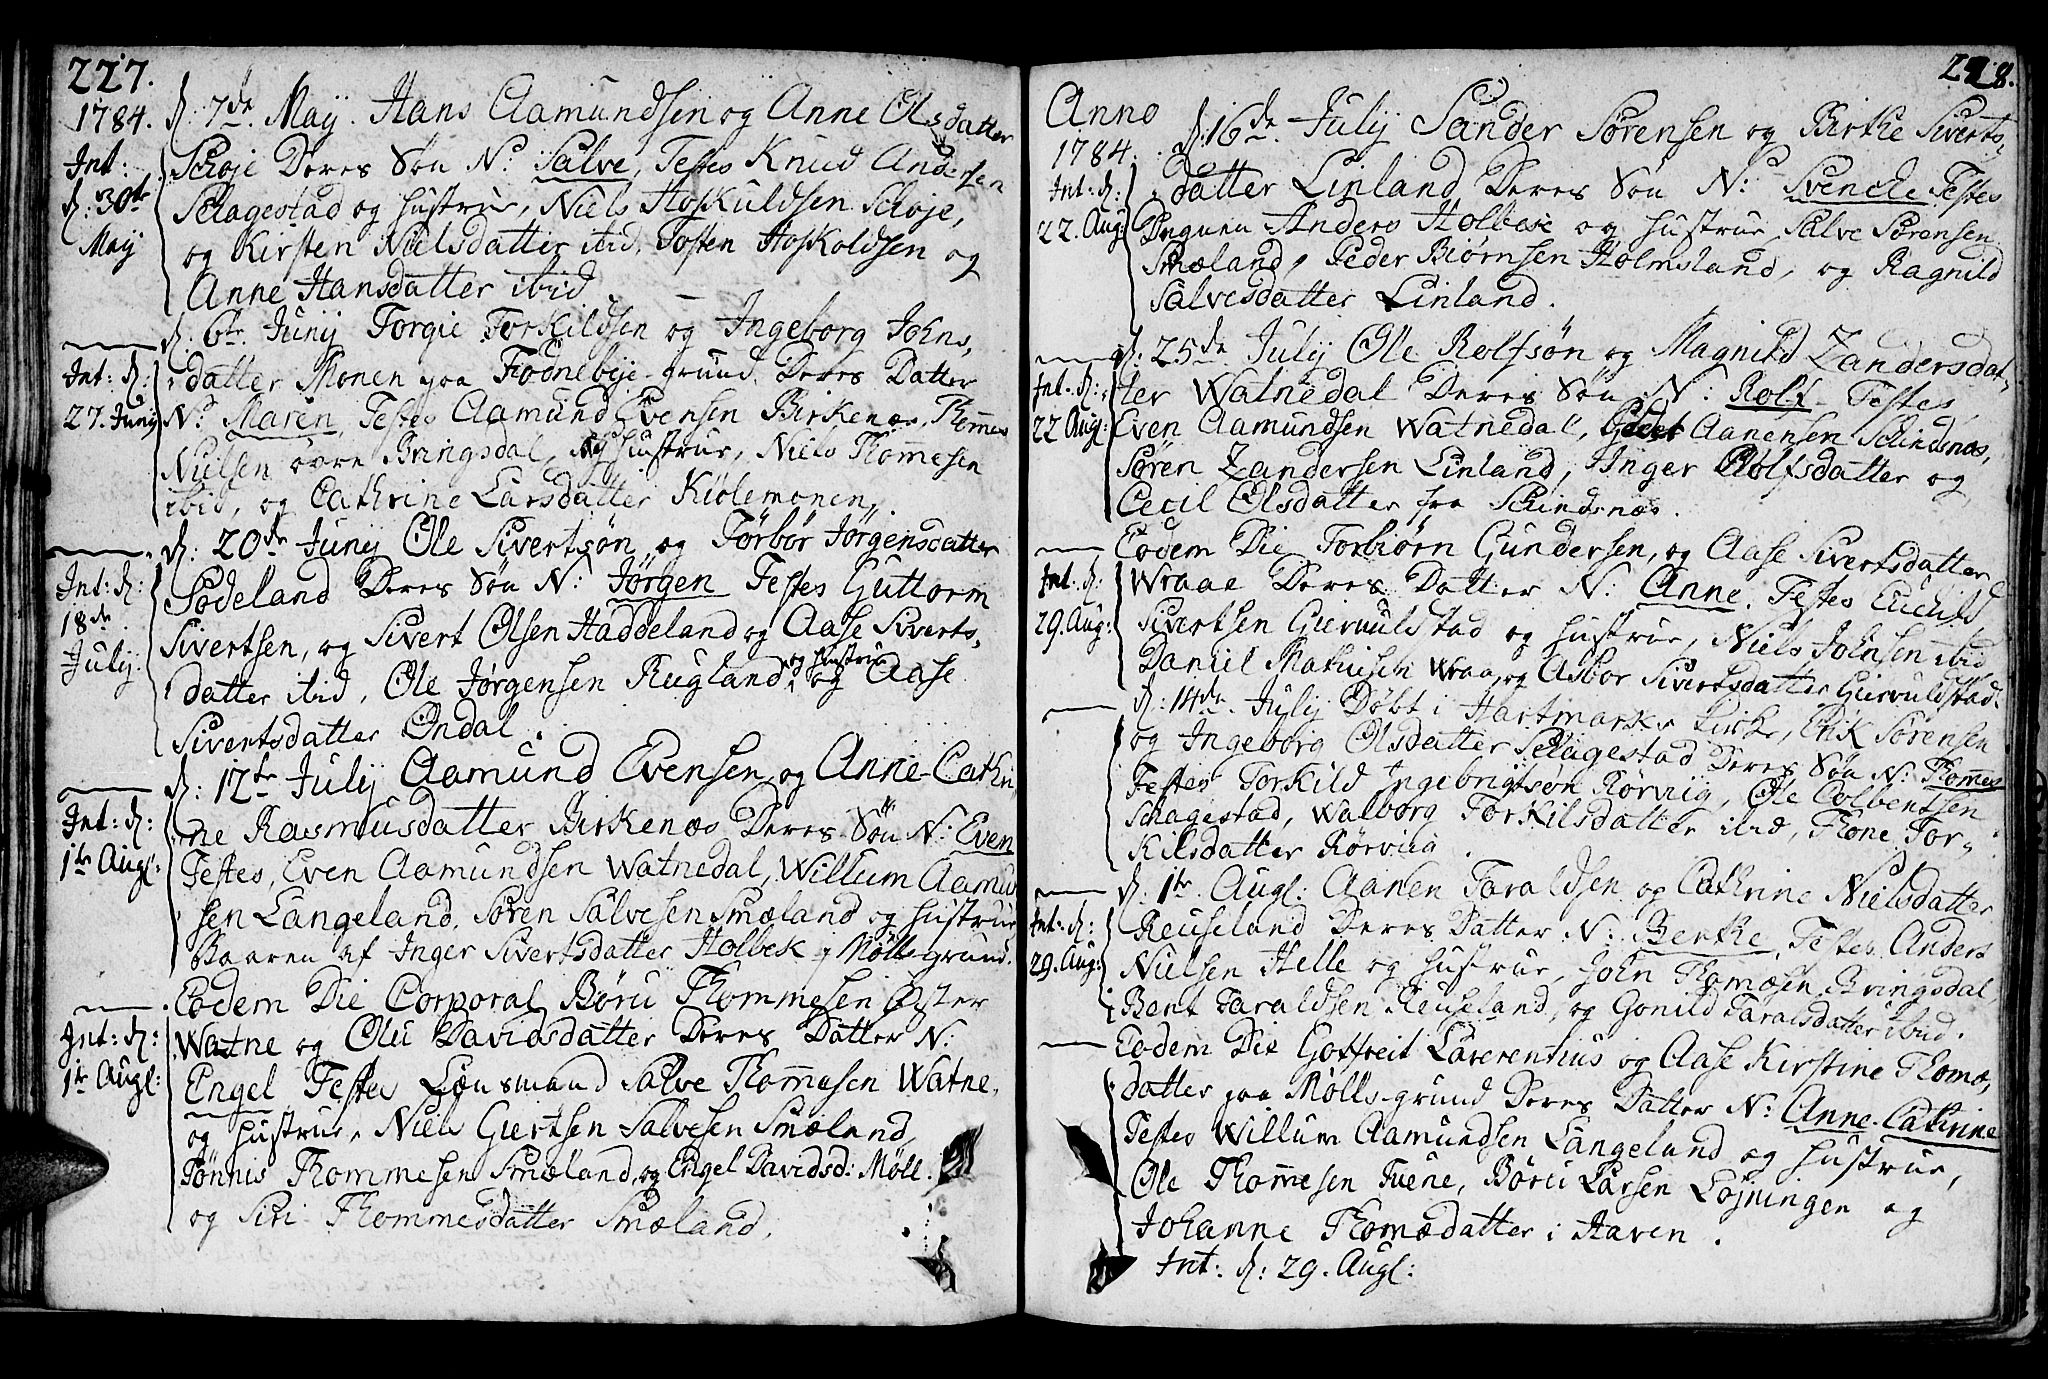 227.
1784. d: 7de Maij. Hans Aamundsen og Anne Olsdatter
Int: d: 30te Maij
Schøje Deres Søn N: Salve, Testes Knud Andersen
Selagestad og hustrue, Niels Hoskuldsen Schøje,
og Kirsten Nielsdatter ibid, Tosten Hoskoldsen og
Anne Hansdatter ibid
d. 6te Junij Torgie Torkildsen og Ingeborg Johns,
Int: d: 27. Junij
datter Monen paa Fodnebye-grund. Deres Datter
N: Maren, Testes Aamund Evensen Birkenæs, Thommes
Nielsen øvre Bringsdal, og hustrue, Niels Thommesen
ibid, og Cathrine Larsdatter Kiølemonen,
d: 20de Junij Ole Sivertsøn og Tørbør Jørgensdatter
Int: d: 18de Julij
Sodeland Deres Søn N: Jørgen Testes Guttorm
Sivertsen, og Sivert Olsen Haddeland og Aase Siverts,
datter ibid, Ole Jørgensen Rugland og hustrue og Aase
Sivertsdatter Ondal.
d: 17te Julij Aamund Evensen og Anne-Cathri,
Int: d: 1te Augl:
ne Rasmusdatter Birkenæs Deres Søn N: Even
Testes, Even Aamundsen Watnedal, Willum Aamun
sen Langeland, Søren Salvesen Smæland og hustrue
Baaren af Inger Sivertsdatter Holbek i Mølls-grund.
Eodem Die Corporal Børu Thommesen Øster
Int: d: 1te Augl:
Watne og Olu Davidsdatter Deres Datter N:
Engel Testes Lænsmand Salve Thommesen Watne,
og hustrue, Niels Giertsen Salvesen Smæland,
Tønnis Thommesen Smæland, og Engel Davidsd: Møll.
og Siri Thommesdatter Smæland.
228.
Anno 1784. d: 16de Julij Sander Sørensen og Birte Siverts,
Int: d: 22. Aug:
datter Linland Deres Søn N: Svencke Testes
Anders Holbek og hustrue, Salve Sørensen
Smæland, Peder Biørnsen Holmsland, og Ragnild
Salvesdatter Linland.
d: 25de Julij Ole Rolfsøn og Magnild Zandersdat,
Int. d: 22 Augl:
ter Watnedal Deres Søn N: Rolf Testes,
Even Aamundsen Watnedal, Aanensen Schindsnæs,
Søren Zandersen Linland, Inger Rolfsdatter og
Cecil Olsdatter fra Schindsnæs.
Eodem Die Torbiørn Gundersen, og Aase Sivertsdatter
Int: d: 29. Aug:
Wraae Deres Datter N: Anne. Testes Euchild
Sivertsen Giervulstad og hustrue, Niels Johnsen ibid
Daniel Mathisen Wraa, og Asbor Sivertsdatter Giervuldstad.
d: 14de Julij Døbt i Hartmarks Kirke, Erik Sørensen
og Ingeborg Olsdatter Selagestad Deres Søn N: Thommes
Testes Torkild Ingebrigtsøn Rørvig, Ole Colbentsen
Schagestad, Walborg Torkilsdatter ibid, Thone Tor,
kilsdatter Rørviig.
d: 1te Augl: Aanen Taraldsen og Cathrine Nielsdatter
Int: d: 29. Aug:
Reuseland Deres Datter N: Berthe, Testes Anders
Nielsen Helle og hustrue, John Thomæsen Bringsdal,
Bent Taraldsen Reuseland, og Gonild Taralsdatter ibid.
Eodem Die Gottfreit Laverentius og Aase Kirstine Thomæ,
datter paa Mølls-grund Deres Datter N: Anne-Cathrine
Testes Willum Aamundsen Langeland og hustrue,
Ole Thommesen Tuene, Børu Larsen Løjningen og
Johanne Thomædatter i Haven.
Int: d: 29. Augl: